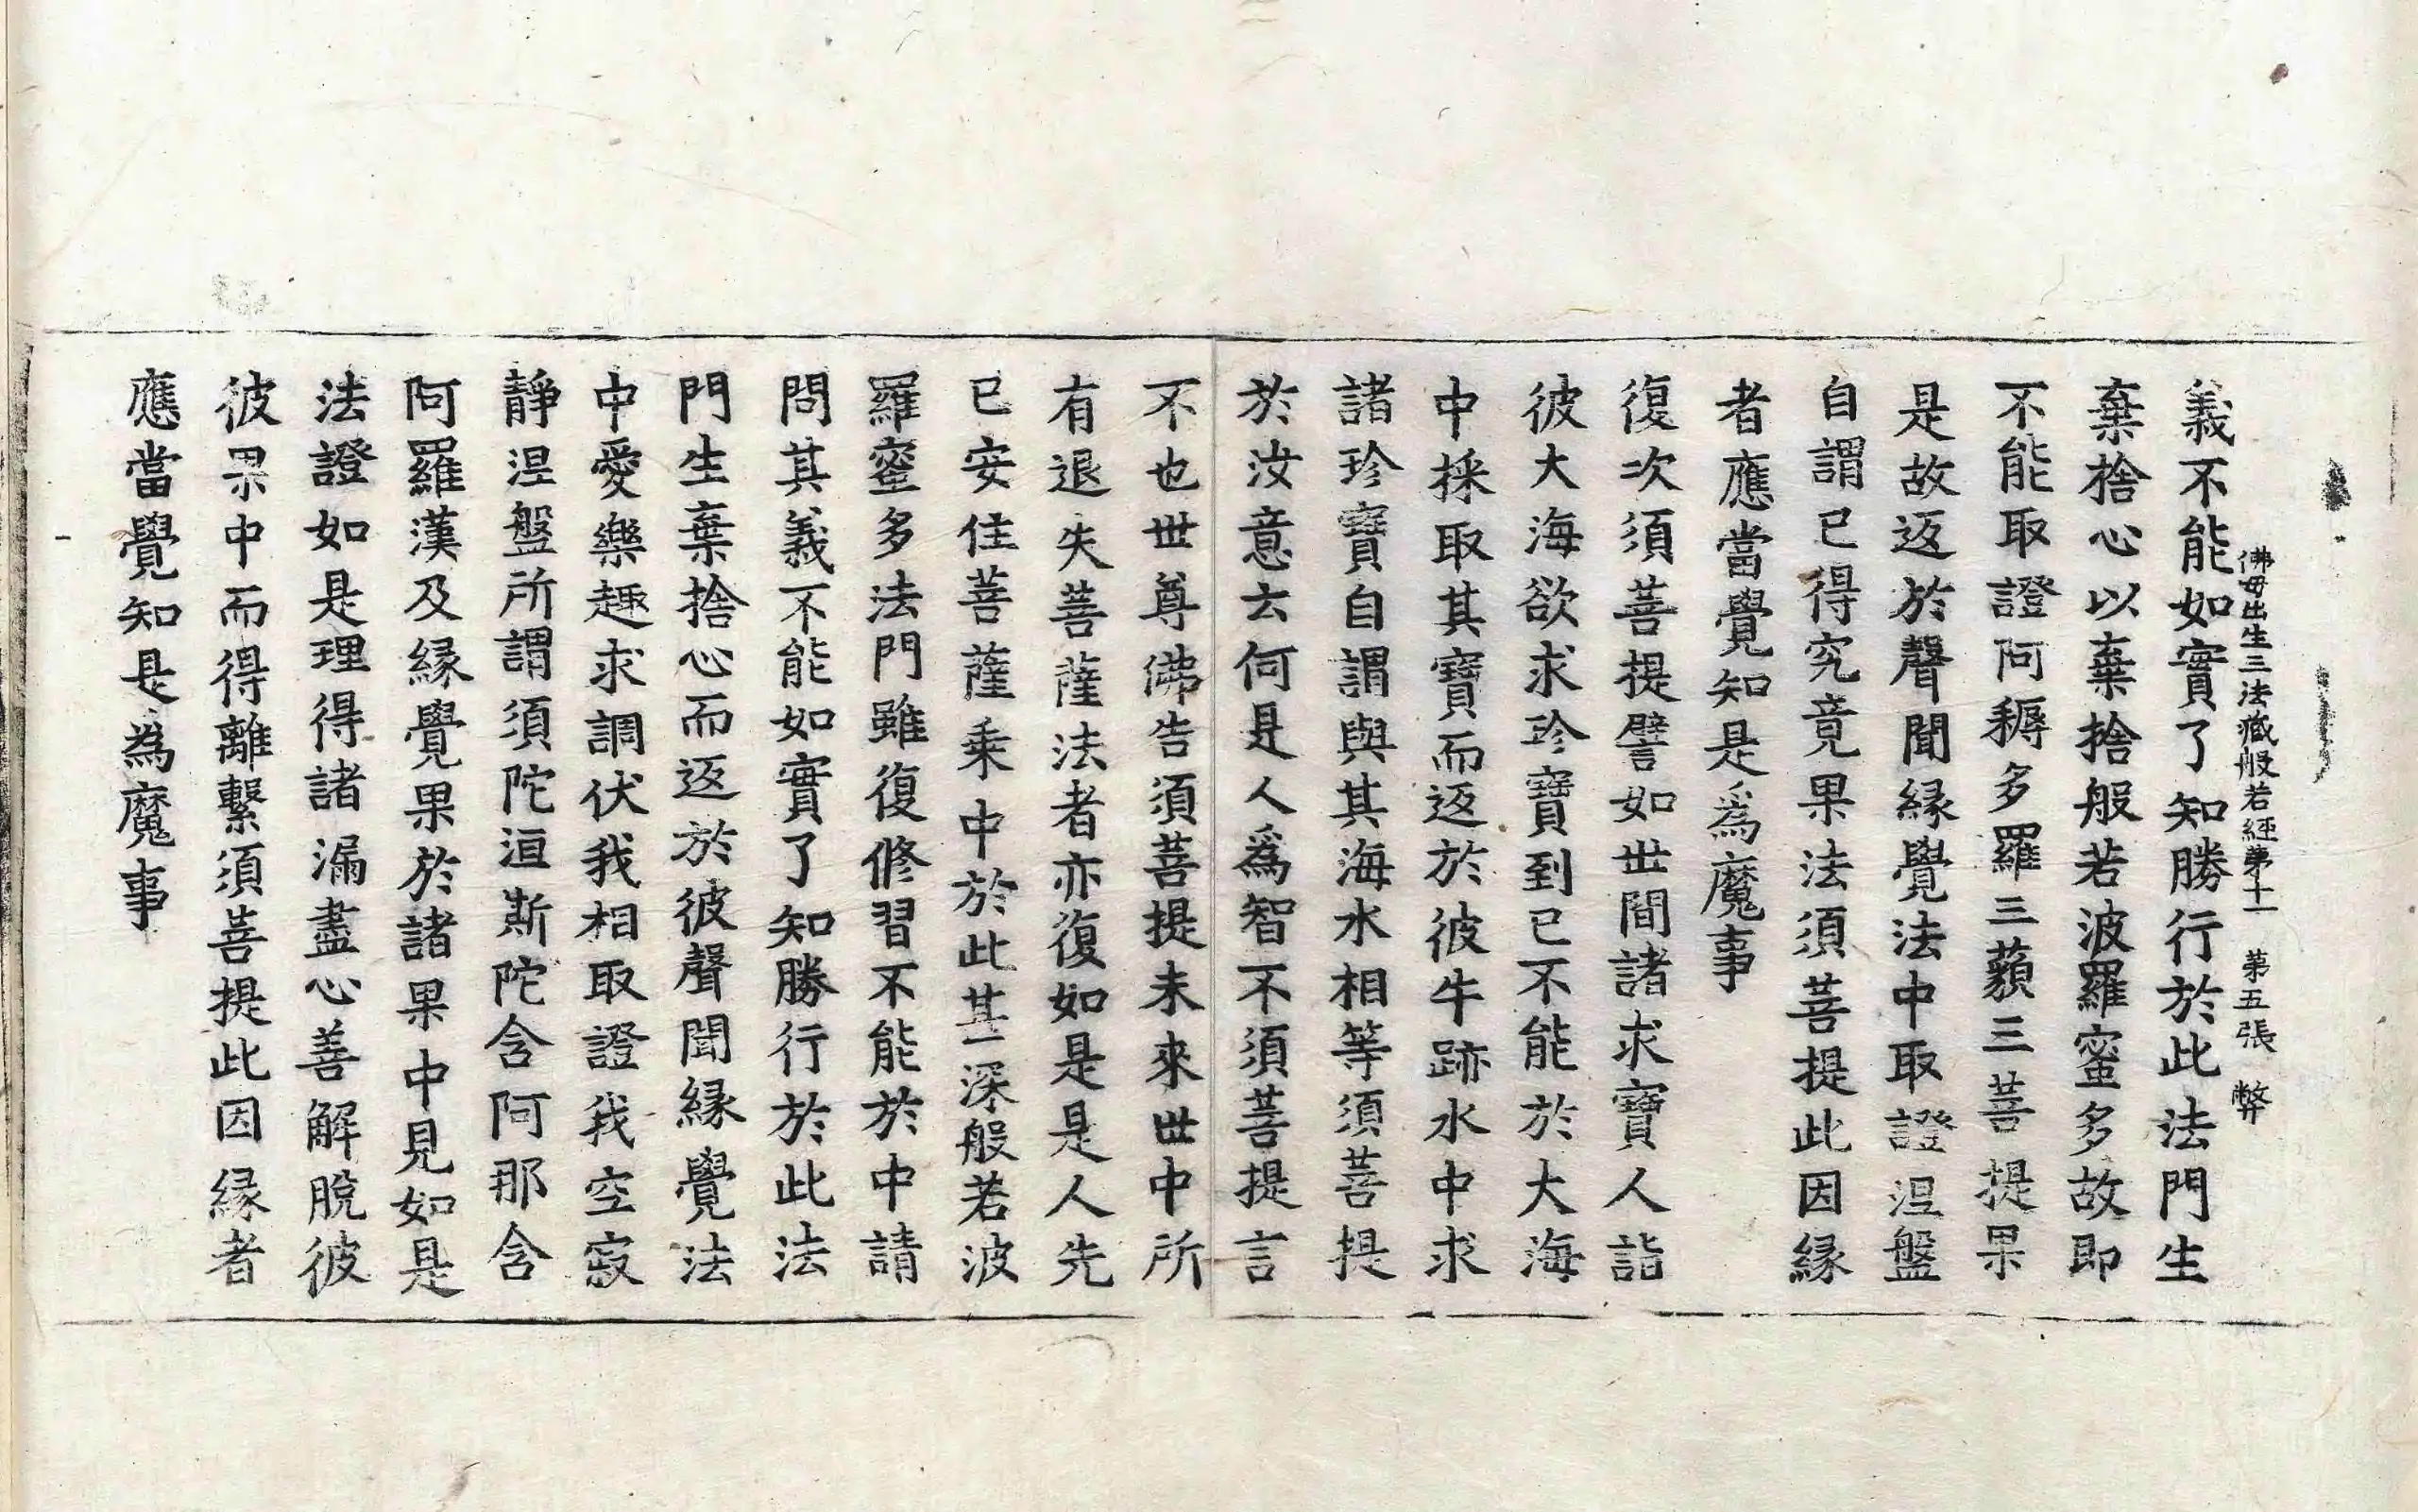 佛母出生三法藏般若經第十一 第五張 弊
義不能如實了知勝行於此法門生
棄捨心以棄捨般若波羅蜜多故即
不能取證阿耨多羅三藐三菩提果
是故返於聲聞緣覺法中取證涅盤
自謂已得究竟果法須菩提此因緣
者應當覺知是為魔事
復次須菩提譬如世間諸求寶人詣
彼大海欲求珍寶到已不能於大海
中採取其寶而返於彼牛跡水中求
諸珍寶自謂與其海水相等須菩提
於汝意云何是人為智不須菩提言
不也世尊佛告須菩提未來世中所
有退失菩薩法者亦復如是是人先
已安住菩薩乘中於此甚深般若波
羅蜜多法門雖復修習不能於中請
問其義不能如實了知勝行於此法
門生棄捨心而返於彼聲聞緣覺法
中愛樂趣求調伏我相取證我空寂
靜涅盤所謂須陀洹斯陀含阿那含
阿羅漢及緣覺果於諸果中見如是
法證如是理得諸漏盡心善解脫彼
彼果中而得離繫須菩提此因緣者
應當覺知是為魔事